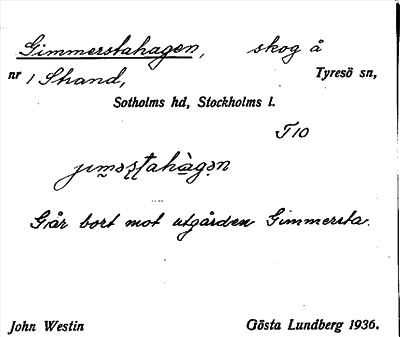 Gimmerstahagen, skog å
nr 1 Strand, Tyresö sn,
Sotholms hd, Stockholms l.
T10
Går bort mot utgården Gimmersta.
John Westin Gösta Lundberg 1936.